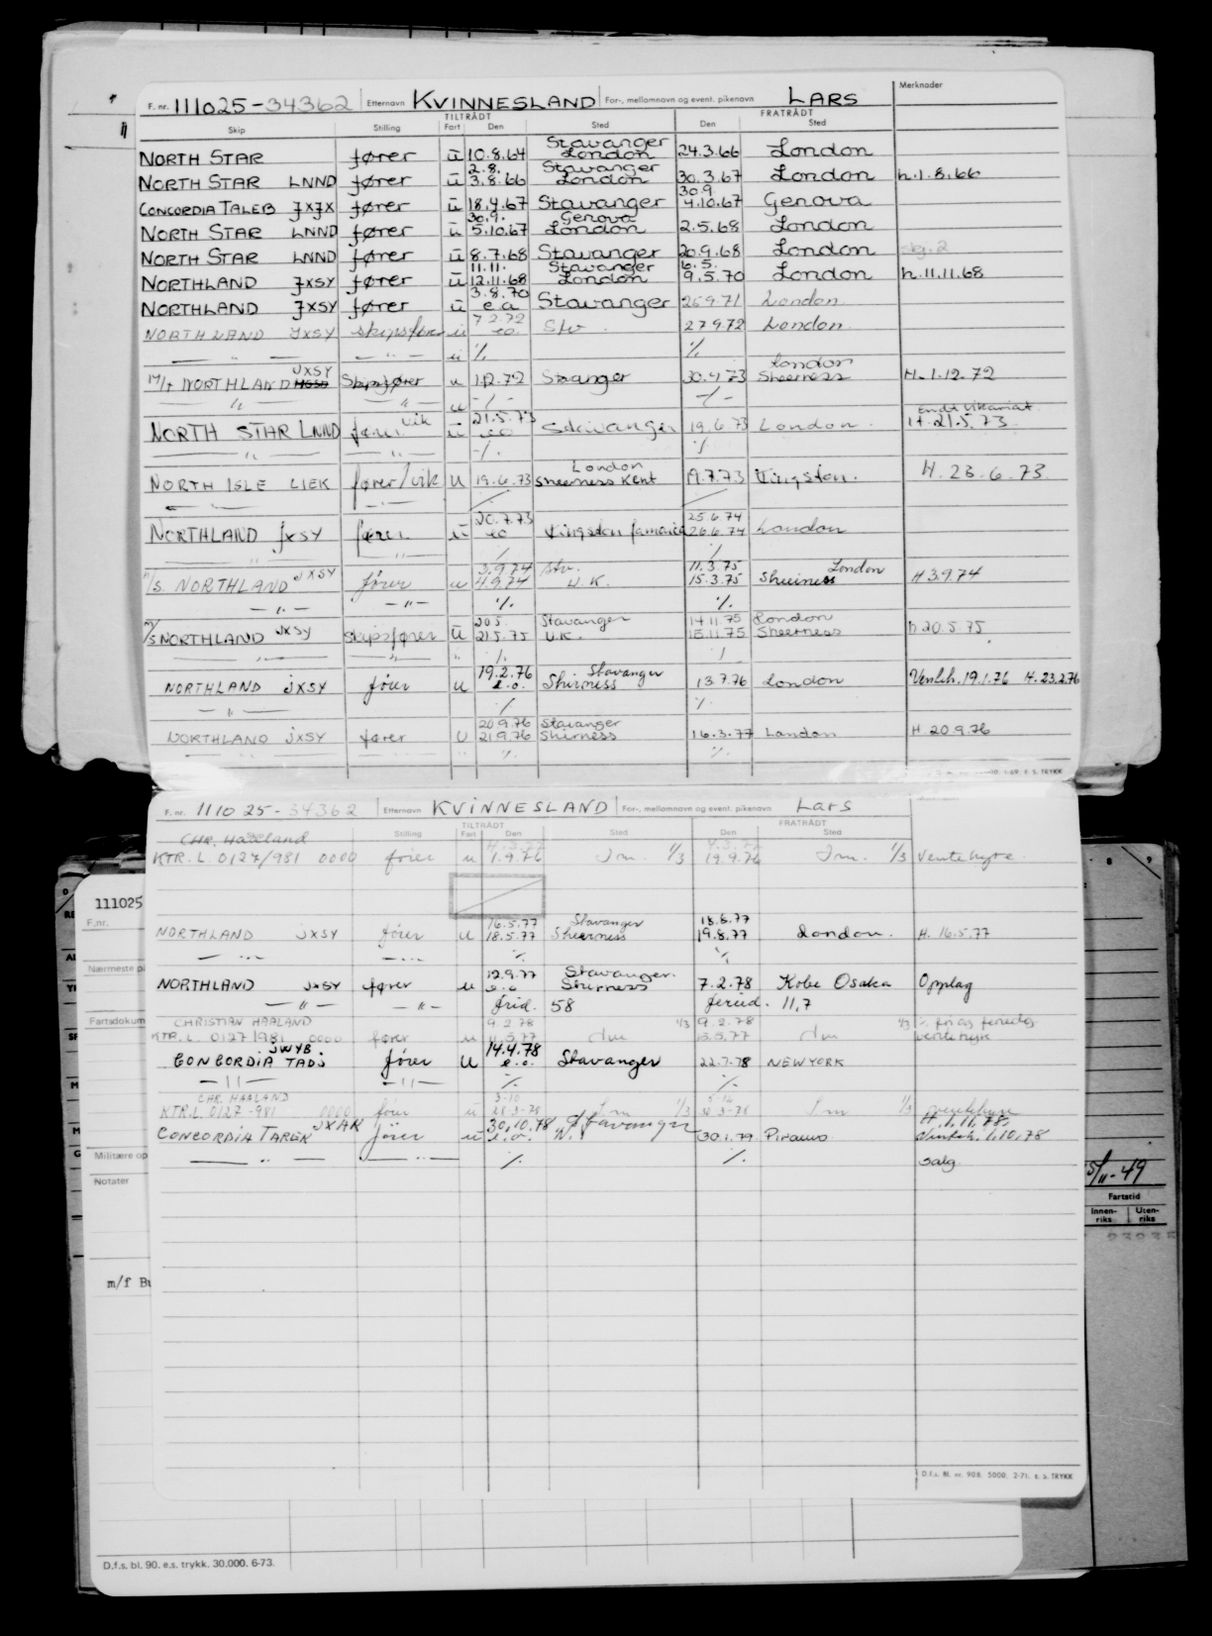 F. nr. 111025-34362 Etternavn KVINNESLAND For-, mellomnavn og event. pikenavn LARS Merknader
TILTRÅDT FRATRÅDT
Skip Stilling Fart Den Sted Den Sted
Stavanger
NORTH STAR fører ū 10.8.64 London 24.3.66 London
2.8. Stavanger
NORTH STAR LNND fører ū 3.8.66 London 30.3.67 London h.1.8.66
30.9
CONCORDIA TALEB JXJX fører ū 18.4.67 Stavanger 4.10.67 Genova
30.9. Genova
NORTH STAR LNND fører ū 5.10.67 London 2.5.68 London
NORTH STAR LNND fører ū 8.7.68 Stavanger 20.9.68 London
11.11. Stavanger 6.5.
NORTHLAND JXSY fører ū 12.11.68 London 9.5.70 London h.11.11.68
3.8.70
NORTHLAND JXSY fører ū e.a Stavanger 25.9.71 London
7.2.72
NORTHLAND JXSY skipsfører ū eo. Stv. 27.9.72 London
— " — — " — ū % %
JXSY London
M/T NORTHLAND Skipsfører u 1.12.72 Stavanger 30.4.73 Sheerness H. 1.12.72
— " — — " — u -/- -/-
vik 21.5.73 Endr. vikariat
NORTH STAR LNND fører ū eo Stavanger 19.6.73 London. H. 21.5.73
— " — — " — -/. %
London
NORTH ISLE LIEK fører/vik u 19.6.73 Sheerness Kent 19.7.73 Kingston. H. 23.6.73
20.7.73 25.6.74
NORTHLAND JXSY fører ū eo Kingston Jamaica 26.6.74 London
JXSY 3.9.74 Stv. 11.3.75 London
M/S. NORTHLAND fører u 4.9.74 U.K. 15.3.75 H 3.9.74
— " — — " — % %
JXSY 20.5. Stavanger 14.11.75 London
M/S NORTHLAND skipsfører ū 21.5.75 U.K. 15.11.75 Sheerness h 20.5.75
19.2.76 Stavanger
NORTHLAND JXSY fører u e.o. Shirness 13.7.76 London 19.1.76 H. 23.2.76
— " — % %
20.9.76 Stavanger
NORTHLAND JXSY fører U 21.9.76 Shirness 16.3.77 London H 20.9.76
% %
1-69. E. S. TRYKK
F. nr. 111025-34362 Etternavn KVINNESLAND For-, mellomnavn og event. pikenavn Lars
TILTRÅDT FRATRÅDT
Stilling Fart Den Sted Den Sted
CHR. Haaland
KTR.L. 0127/981 0000 fører u 1.9.76 1/3 19.9.76 1/3 Ventehyre.
16.5.77 Stavanger 18.8.77
NORTHLAND JXSY fører u 18.5.77 Sheerness 19.8.77 London. H. 16.5.77
% %
12.9.77 Stavanger.
NORTHLAND JXSY fører u e.o Shirness 7.2.78 Kobe Osaka Opplag
— " — — " — frid. 58 feried. 11,7
CHRISTIAN HAALAND 9.2.78 1/3 9.2.78 1/3
KTR.L. 0127/981 0000 fører u 11.5.77 13.5.77 ventehyre
JWYB. 14.4.78
CONCORDIA TADJ fører u e.o. Stavanger 22.7.78 NEWYORK
— " — — " — % %
CHR. HAALAND 3-10
KTR.L. 0127-981 0000 fører u 1/3 1/3
JXAK 30.10.78 Stavanger H. 1.11.78.
CONCORDIA TAREK fører u e.o. 30.1.79 Piraeus 1.10.78
— " — — " — % % salg
D.f.s. Bl. nr. 908. 5000. 2-71. E. S. TRYKK
111025
F.nr.
Nærmeste p
Fartsdokum
Militære op
Notater
m/f Bu
D.f.s. bl. 90. e.s. trykk. 30.000. 6-73.
8 9
5/11-49
Fartstid
Innen-riks Uten-riks